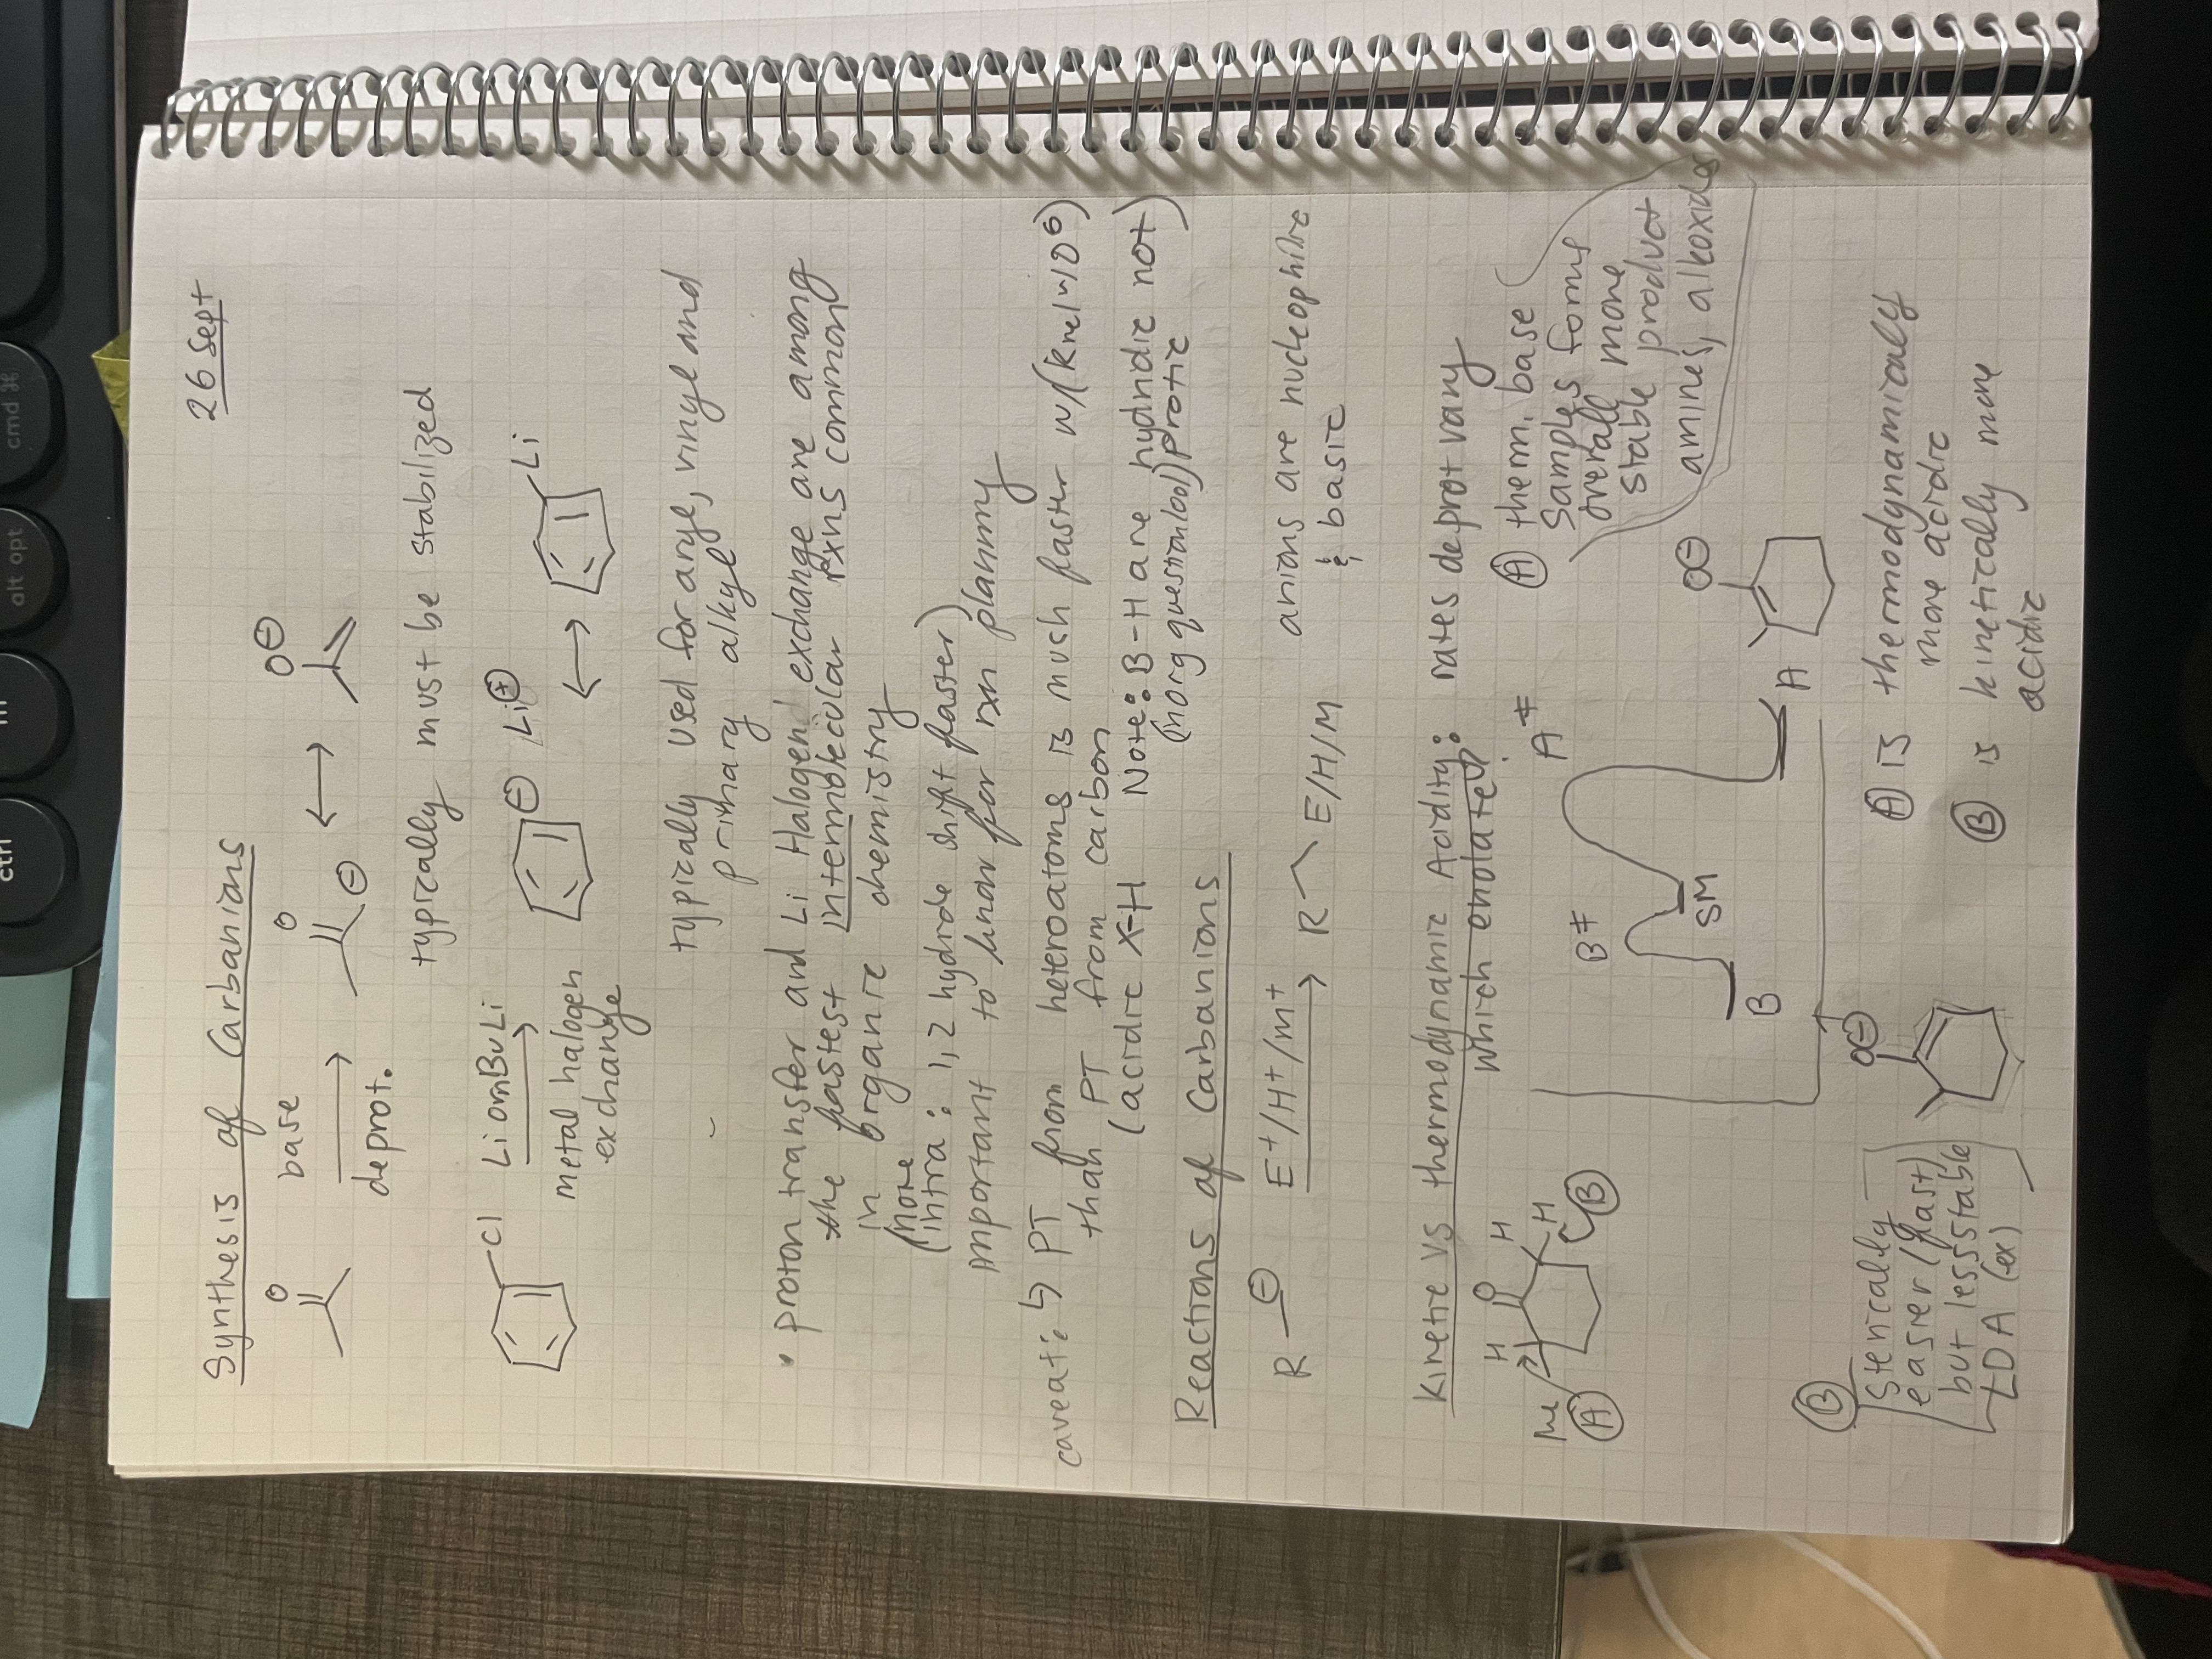 ctrl
alt opt
cmd ⌘
26 Sept
Synthesis of Carbanions
O
base
deprot.
O
⊖
O⊖
typically must be stabilized
Cl
Li or nBuLi
metal halogen
exchange
⊖ Li⊕
Li
typically used for aryl, vinyl and
primary alkyl
• proton transfer and Li Halogen exchange are among
the fastest intermolecular rxns common
in organic chemistry
(note
(intra: 1,2 hydride shift faster)
important to know for rxn planning
caveat: ↳ PT from heteroatoms is much faster w/(krel~10⁶)
than PT from carbon
(acidic X-H Note: B-H are hydridic not)
(inorg question lool) protic
Reactions of Carbanions
R ⊖
E⁺/H⁺/m⁺
R E/H/M
anions are nucleophilic
& basic
Kinetic vs thermodynamic Acidity: rates deprot vary
which enolate?
H O H
Me H
A B
B‡
A‡
SM
B
A
A therm. base
samples forms
overall more
stable product
amines, alkoxides
O⊖
B
sterically
easier (fast)
but lessstable
LDA (ex)
O⊖
A is thermodynamically
more acidic
B is kinetically more
acidic